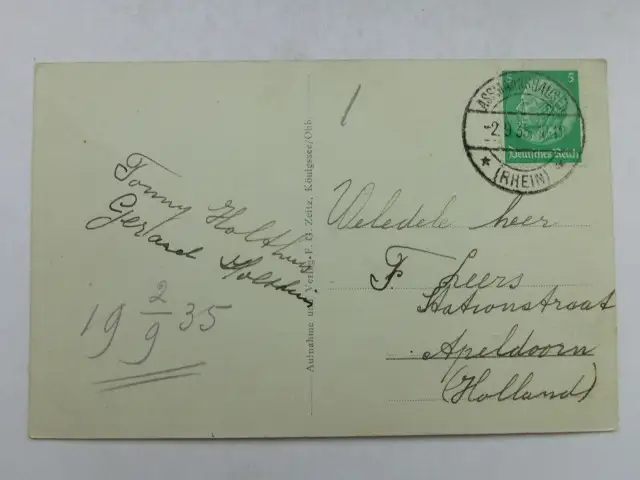 1
5 5
Deutsches Reich
ASSMANNSHAUSEN
-2.9.35
(RHEIN)
Tonny Holthuis
Gerard Holthuis
19 2/9 35
Aufnahme und Verlag F. G. Zeitz, Königssee/Obb.
Weledele heer
F. Peers
Stationstraat
Apeldoorn
(Holland)